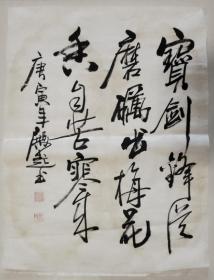 寳劍鋒從
磨礪出梅花
香自苦寒来
庚寅年
書